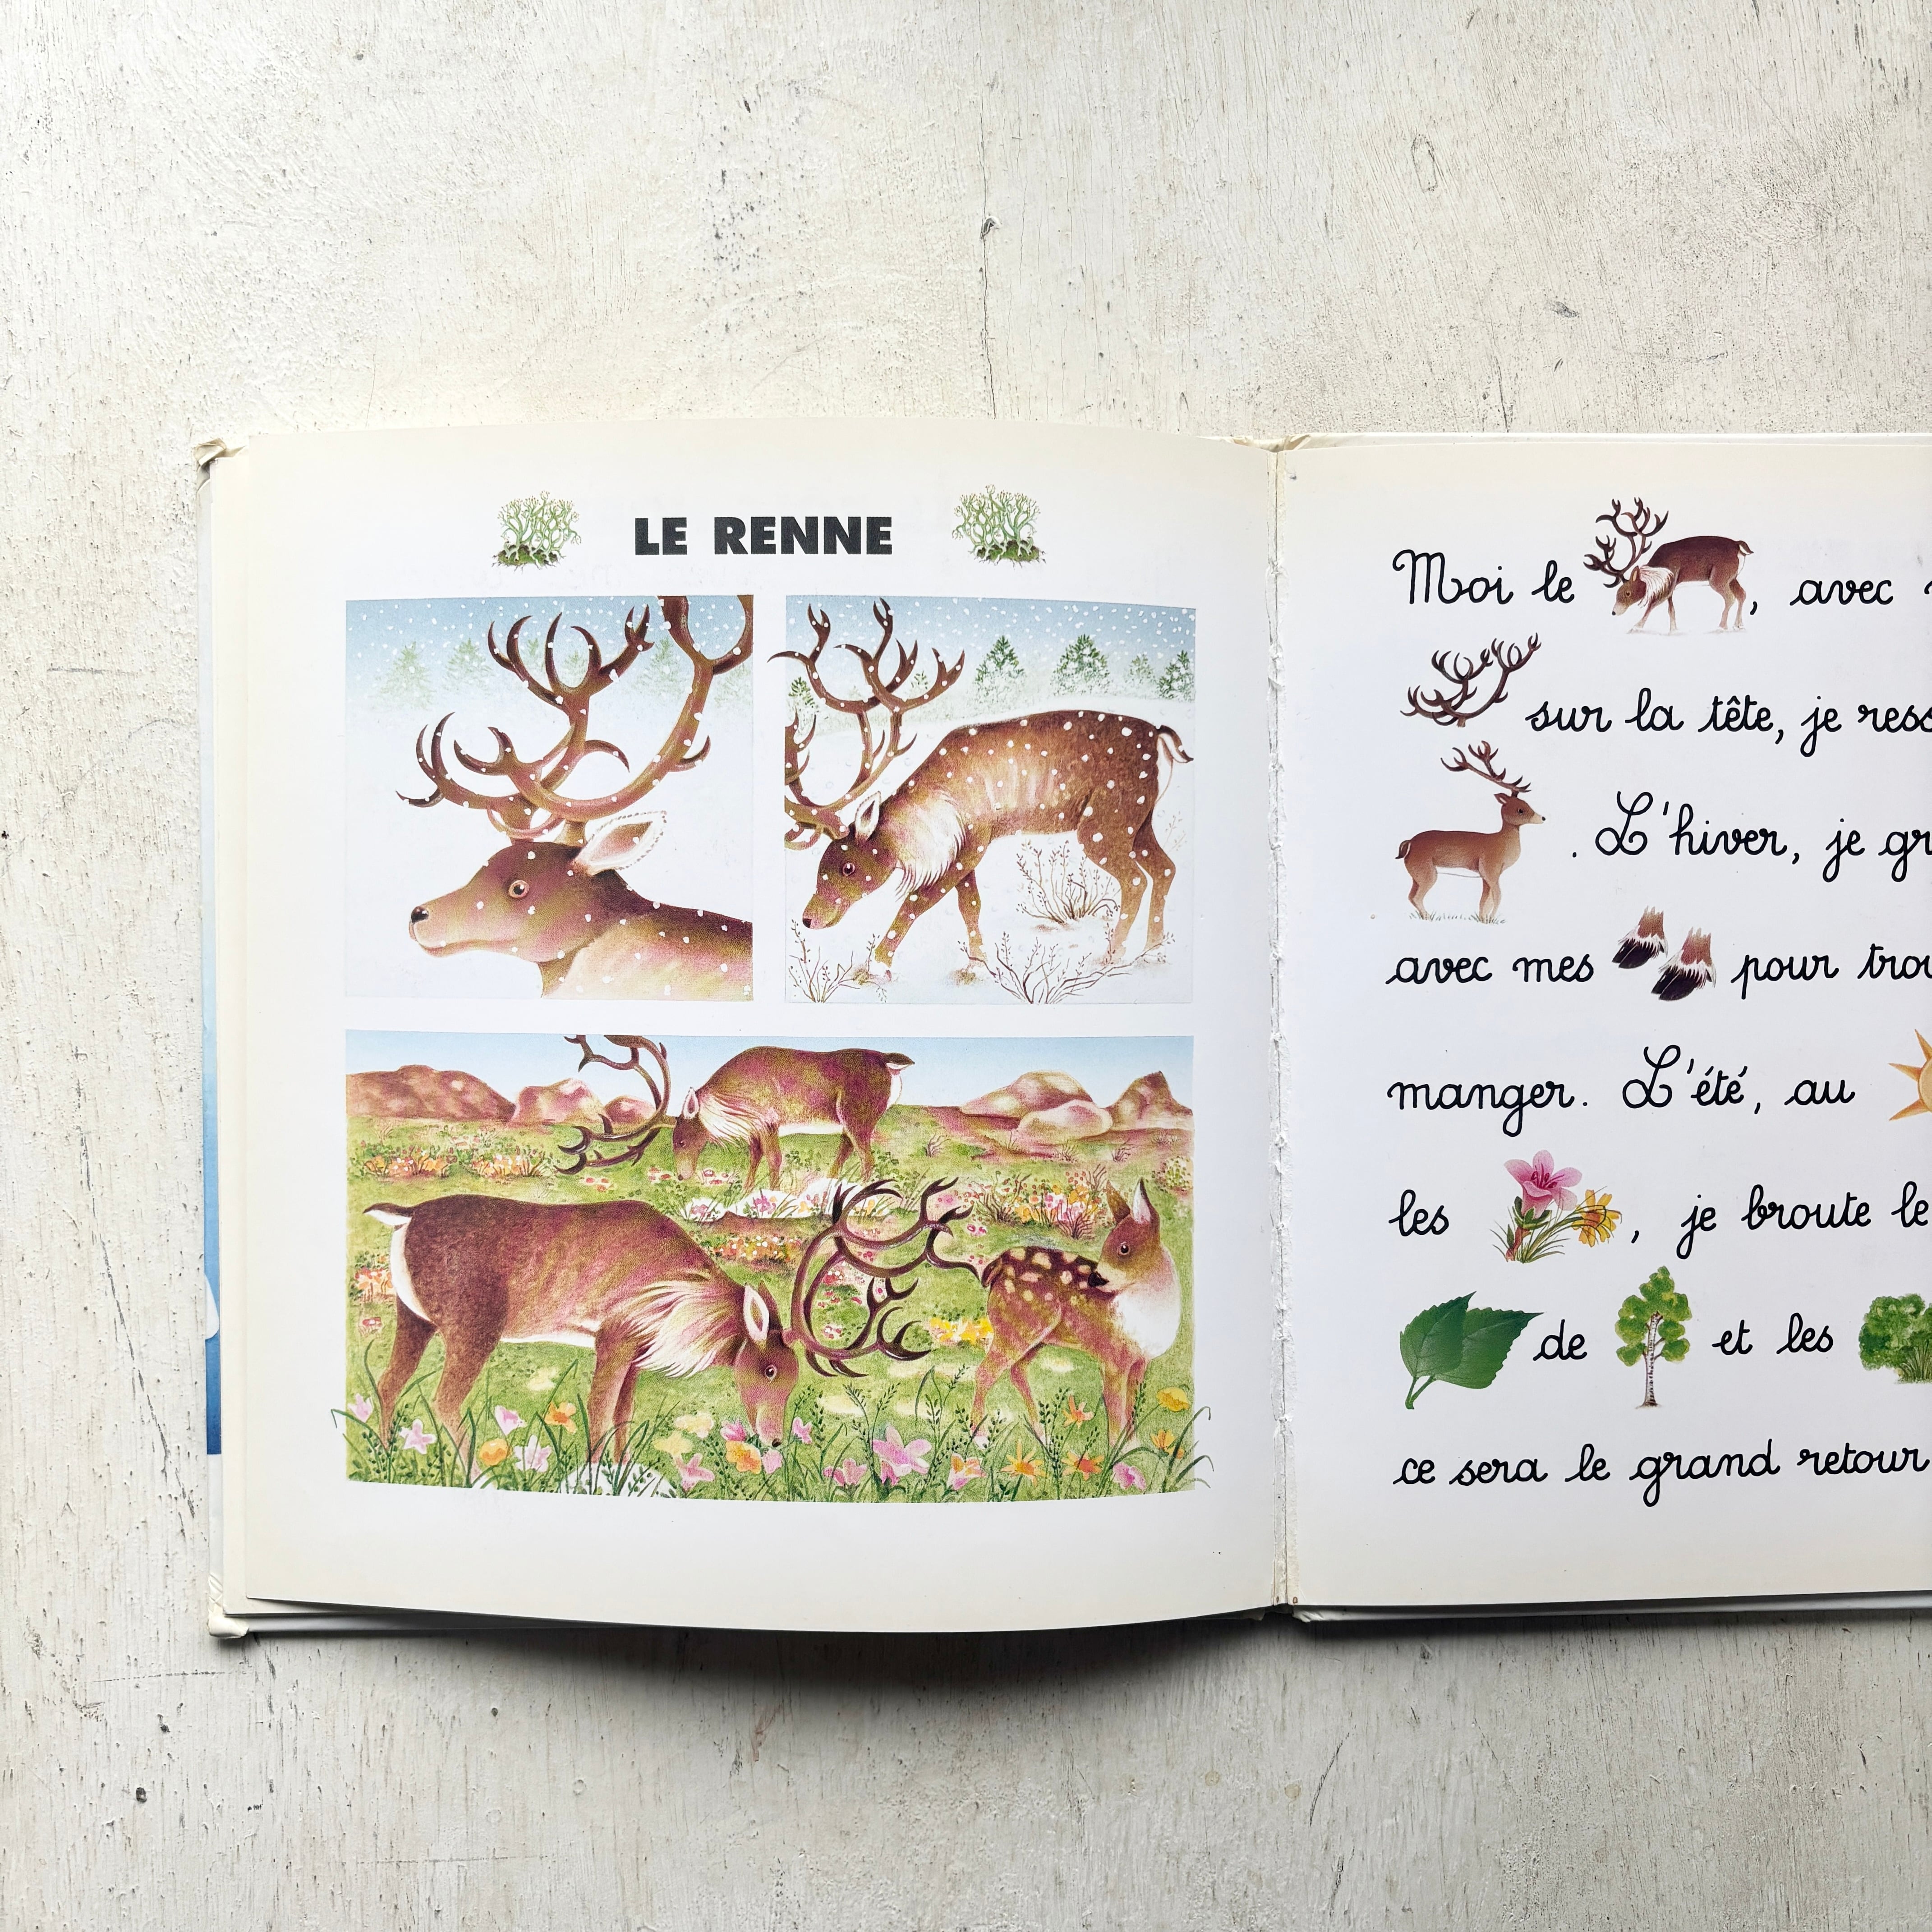 LE RENNE
Moi le , avec
sur la tête, je
. L'hiver, je
avec mes pour
manger. L'été, au
les , je broute
de et les
ce sera le grand retour